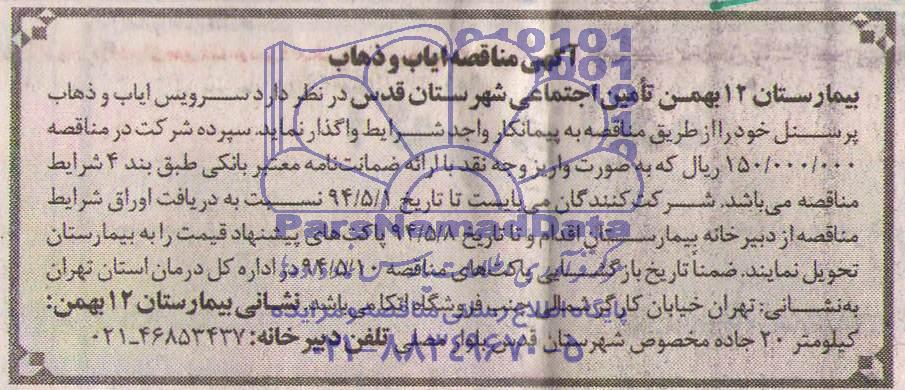 آگهی مناقصه ایاب و ذهاب
بیمارستان ۱۲ بهمن تأمین اجتماعی شهرستان قدس در نظر دارد سرویس ایاب و ذهاب
پرسنل خود را از طریق مناقصه به پیمانکار واجد شرایط واگذار نماید. سپرده شرکت در مناقصه
۱۵۰/۰۰۰/۰۰۰ ریال که به صورت واریز وجه نقد یا ارائه ضمانت‌نامه معتبر بانکی طبق بند ۴ شرایط
مناقصه می‌باشد. شرکت کنندگان می‌بایست تا تاریخ ۹۴/۵/۱ نسبت به دریافت اوراق شرایط
مناقصه از دبیرخانه بیمارستان اقدام و تا تاریخ ۹۴/۵/۸ پاکت‌های پیشنهاد قیمت را به بیمارستان
تحویل نمایند. ضمناً تاریخ بازگشایی پاکت‌های مناقصه ۹۴/۵/۱۰ در اداره کل درمان استان تهران
به‌نشانی: تهران خیابان کارگر شمالی جنب فروشگاه اتکا می‌باشد. نشانی بیمارستان ۱۲ بهمن:
کیلومتر ۲۰ جاده مخصوص شهرستان قدس بلوار مصلی تلفن دبیرخانه: ۴۶۸۵۳۴۳۷-۰۲۱
ParsNamadData
پایگاه اطلاع رسانی مناقصه و مزایده
۰۲۱-۸۸۳۴۹۶۷۰-۵